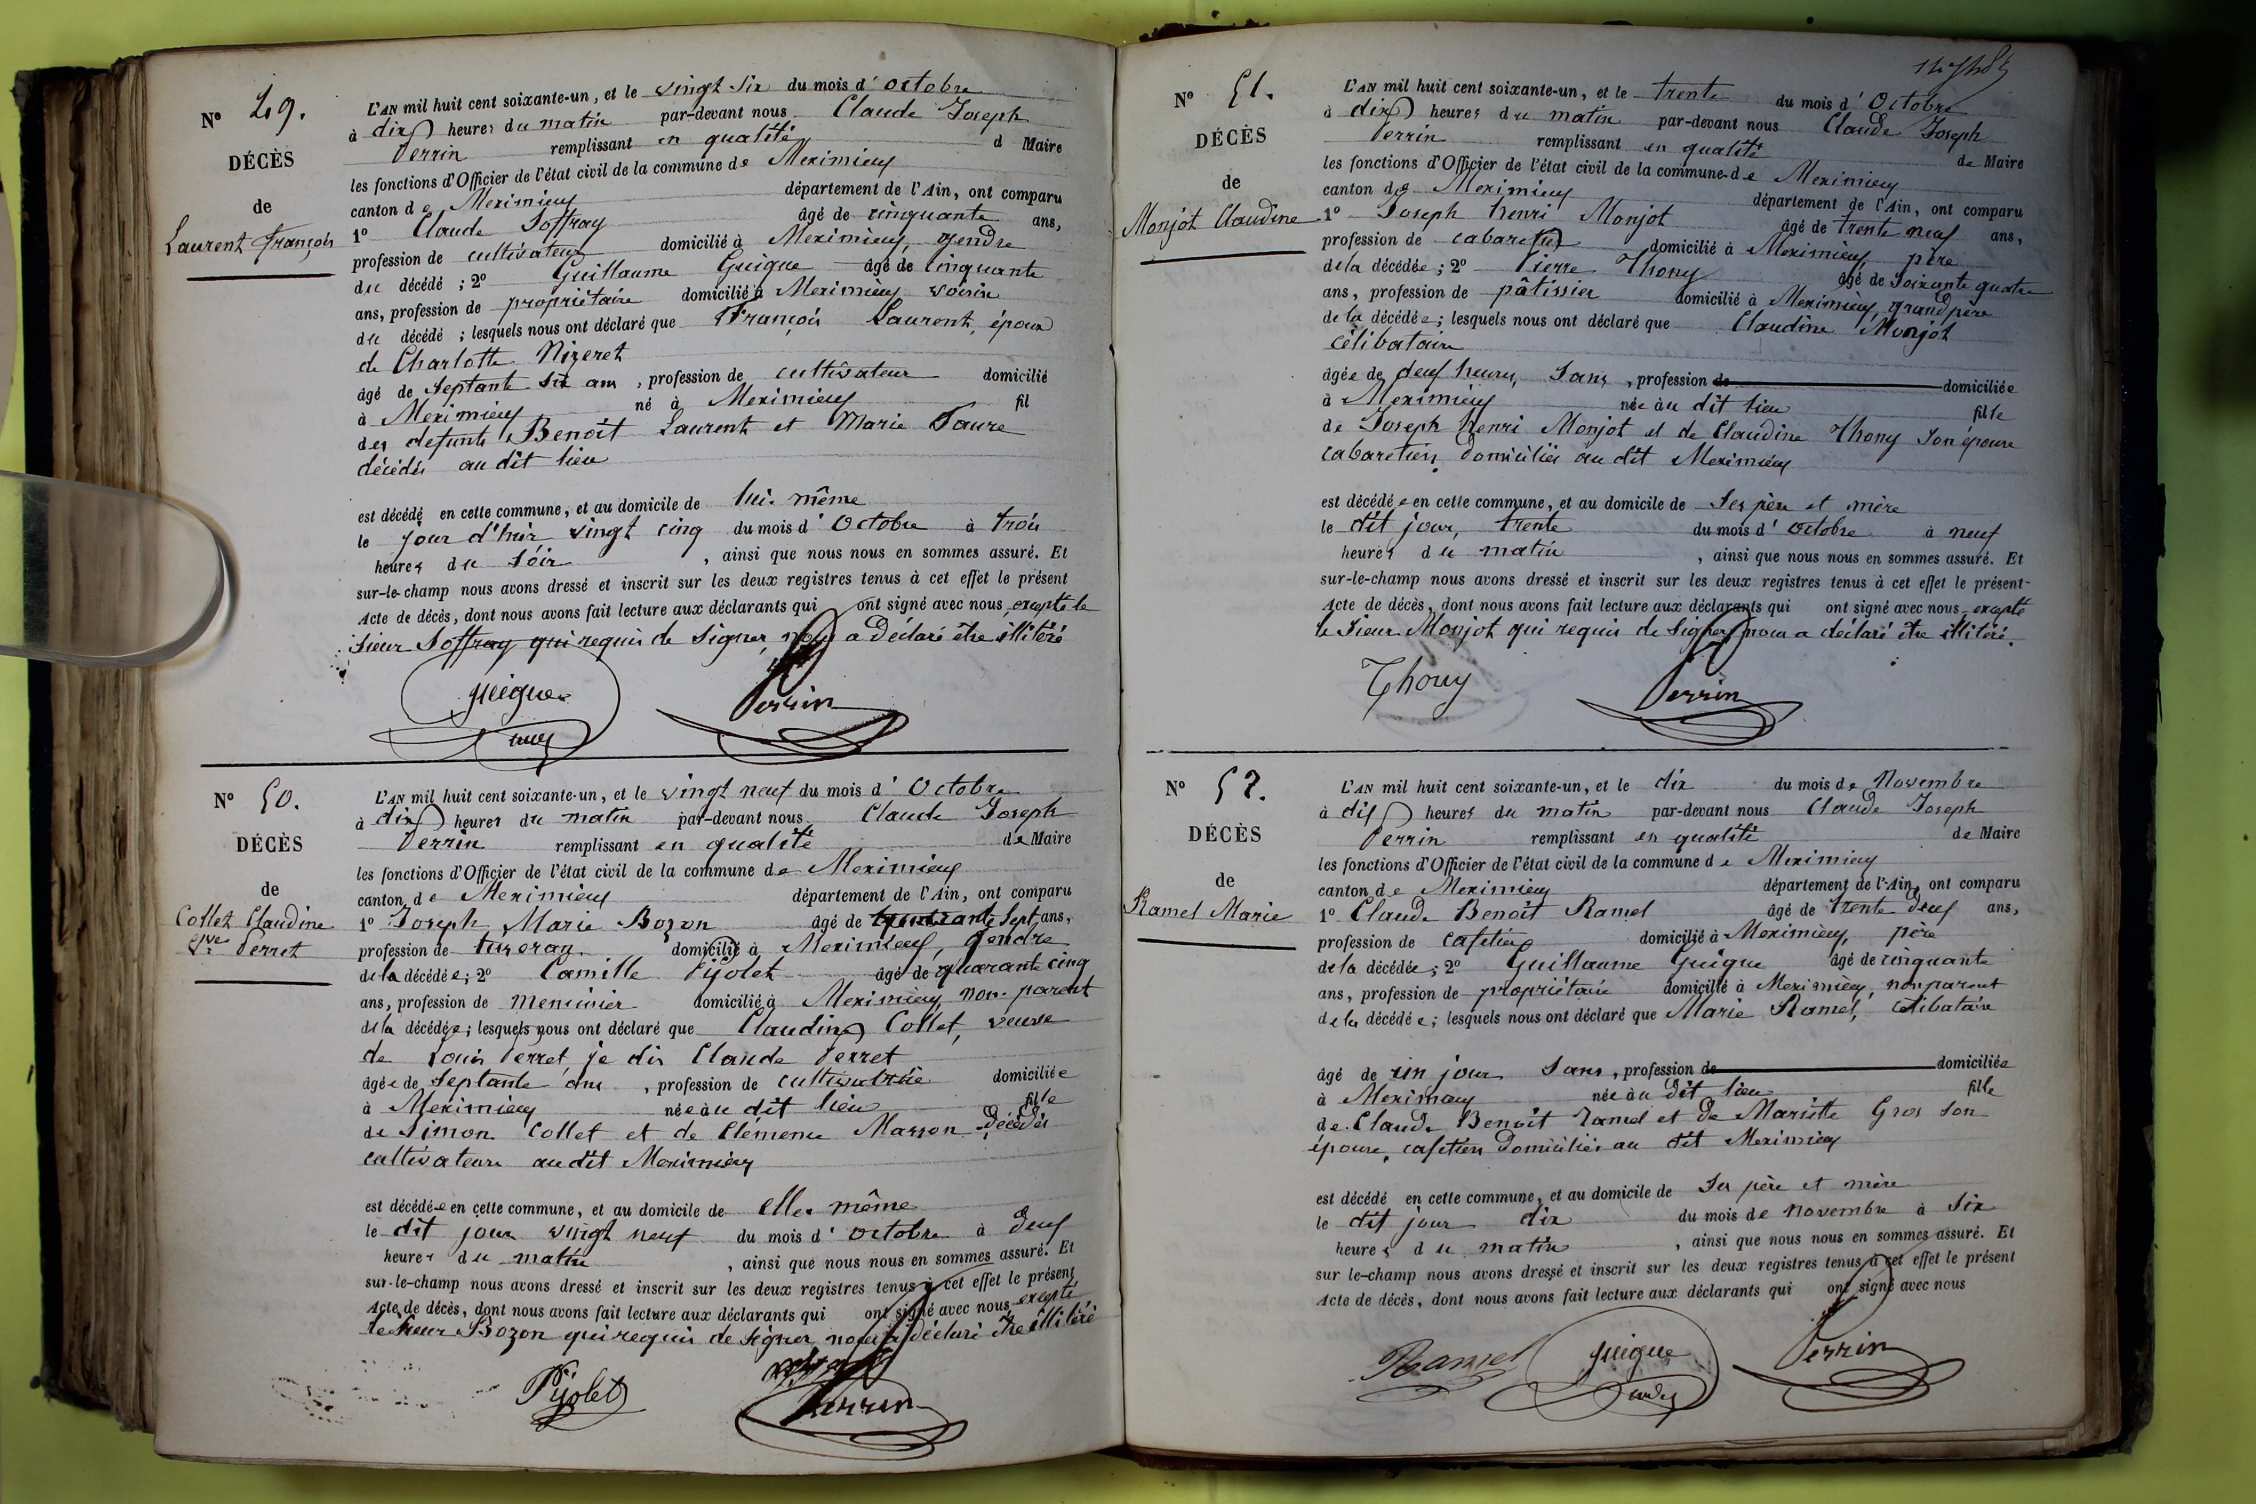 N° 49.
DÉCÈS
de
Laurent François
L'AN mil huit cent soixante-un, et le vingt six du mois d'octobre
à dix heures du matin par-devant nous Claude Joseph
Perrin remplissant en qualité d Maire
les fonctions d'Officier de l'état civil de la commune de Meximieux
canton de Meximieux département de l'Ain, ont comparu
1° Claude Soffray âgé de cinquante ans,
profession de cultivateur domicilié à Meximieux, gendre
du décédé ; 2° Guillaume Guigue âgé de cinquante
ans, profession de propriétaire domicilié à Meximieux voisin
du décédé ; lesquels nous ont déclaré que François Laurent, époux
de Charlotte Nizeret
âgé de Septante six ans, profession de cultivateur domicilié
à Meximieux né à Meximieux fil
des defunts Benoît Laurent et Marie Faure
décédés au dit lieu
est décédé en cette commune, et au domicile de lui-même
le jour d'hier vingt cinq du mois d'Octobre à trois
heures du Soir, ainsi que nous nous en sommes assuré. Et
sur-le-champ nous avons dressé et inscrit sur les deux registres tenus à cet effet le présent
Acte de décès, dont nous avons fait lecture aux déclarants qui ont signé avec nous excepté le
Sieur Soffray qui requis de signer, nous a Déclaré être illitéré
Guigue
Perrin
N° 50.
DÉCÈS
de
Collet Claudine
Vve Perret
L'AN mil huit cent soixante-un, et le vingt neuf du mois d'Octobre
à dix heures du matin par-devant nous Claude Joseph
Perrin remplissant en qualité de Maire
les fonctions d'Officier de l'état civil de la commune de Meximieux
canton de Meximieux département de l'Ain, ont comparu
1° Joseph Marie Bozon âgé de quarante Sept ans,
profession de domicilié à Meximieux, Gendre
de la décédée; 2° Camille Pijolet âgé de quarante cinq
ans, profession de menuisier domicilié à Meximieux non-parent
de la décédée; lesquels nous ont déclaré que Claudine Collet, veuve
de Louis Perret, je dis Claude Perret
âgée de Septante ans, profession de cultivatrice domiciliée
à Meximieux née au dit lieu fille
de Simon Collet et de Clémence Masson Décédés
cultivateurs au dit Meximieux
est décédée en cette commune, et au domicile de elle-même
le dit jour vingt neuf du mois d'octobre à deux
heures du matin, ainsi que nous nous en sommes assuré. Et
sur-le-champ nous avons dressé et inscrit sur les deux registres tenus à cet effet le présent
Acte de décès, dont nous avons fait lecture aux déclarants qui ont signé avec nous excepté
le Sieur Bozon qui requis de signer nous a déclaré être illitéré
Pijolet
Perrin
N° 51.
DÉCÈS
de
Monjot Claudine
L'AN mil huit cent soixante-un, et le trente du mois d'Octobre
à dix heures du matin par-devant nous Claude Joseph
Perrin remplissant en qualité de Maire
les fonctions d'Officier de l'état civil de la commune de Meximieux
canton de Meximieux département de l'Ain, ont comparu
1° Joseph henri Monjot âgé de trente neuf ans,
profession de cabaretier domicilié à Meximieux, père
de la décédée; 2° Pierre Thony âgé de Soixante quatre
ans, profession de pâtissier domicilié à Meximieux, grand père
de la décédée; lesquels nous ont déclaré que Claudine Monjot
célibataire
âgée de deux heures, Sans, profession de domiciliée
à Meximieux née au dit lieu fille
de Joseph Henri Monjot et de Claudine Thony Son épouse
cabaretiers, domiciliés au dit Meximieux
est décédée en cette commune, et au domicile de Ses père et mère
le dit jour, trente du mois d'octobre à neuf
heures du matin, ainsi que nous nous en sommes assuré. Et
sur-le-champ nous avons dressé et inscrit sur les deux registres tenus à cet effet le présent
Acte de décès, dont nous avons fait lecture aux déclarants qui ont signé avec nous excepté
le Sieur Monjot qui requis de signer nous a déclaré être illitéré.
Thony
Perrin
N° 52.
DÉCÈS
de
Ramel Marie
L'AN mil huit cent soixante-un, et le dix du mois de Novembre
à dix heures du matin par-devant nous Claude Joseph
Perrin remplissant en qualité de Maire
les fonctions d'Officier de l'état civil de la commune de Meximieux
canton de Meximieux département de l'Ain, ont comparu
1° Claude Benoît Ramel âgé de trente deux ans,
profession de cafetier domicilié à Meximieux, père
de la décédée; 2° Guillaume Guigue âgé de cinquante
ans, profession de propriétaire domicilié à Meximieux, non parent
de la décédée; lesquels nous ont déclaré que Marie Ramel, célibataire
âgé de un jour Sans, profession de domiciliée
à Meximieux née au dit lieu fille
de Claude Benoît Ramel et de Mariette Gros Son
épouse, cafetiers domiciliés au dit Meximieux
est décédé en cette commune, et au domicile de Ses père et mère
le dit jour dix du mois de novembre à Six
heures du matin, ainsi que nous nous en sommes assuré. Et
sur le-champ nous avons dressé et inscrit sur les deux registres tenus à cet effet le présent
Acte de décès, dont nous avons fait lecture aux déclarants qui ont signé avec nous
Ramel
Guigue
Perrin